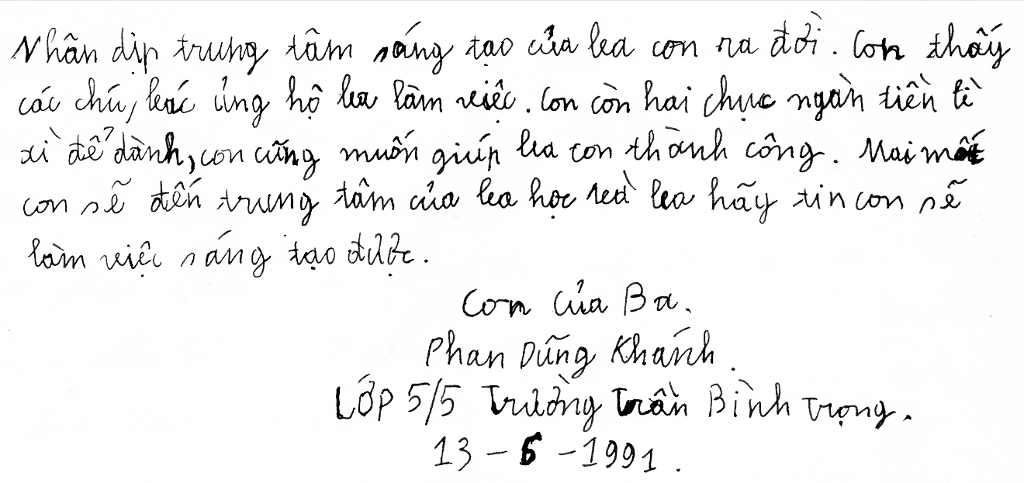 Nhân dịp trung tâm sáng tạo của ba con ra đời. Con thấy
các chú, bác ủng hộ ba làm việc. Con còn hai chục ngàn tiền lì
xì để dành, con cũng muốn giúp ba con thành công. Mai mốt
con sẽ đến trung tâm của ba học và ba hãy tin con sẽ
làm việc sáng tạo được.
Con của Ba.
Phan Dũng Khánh.
LỚP 5/5 Trường Trần Bình Trọng.
13 - 6 - 1991.